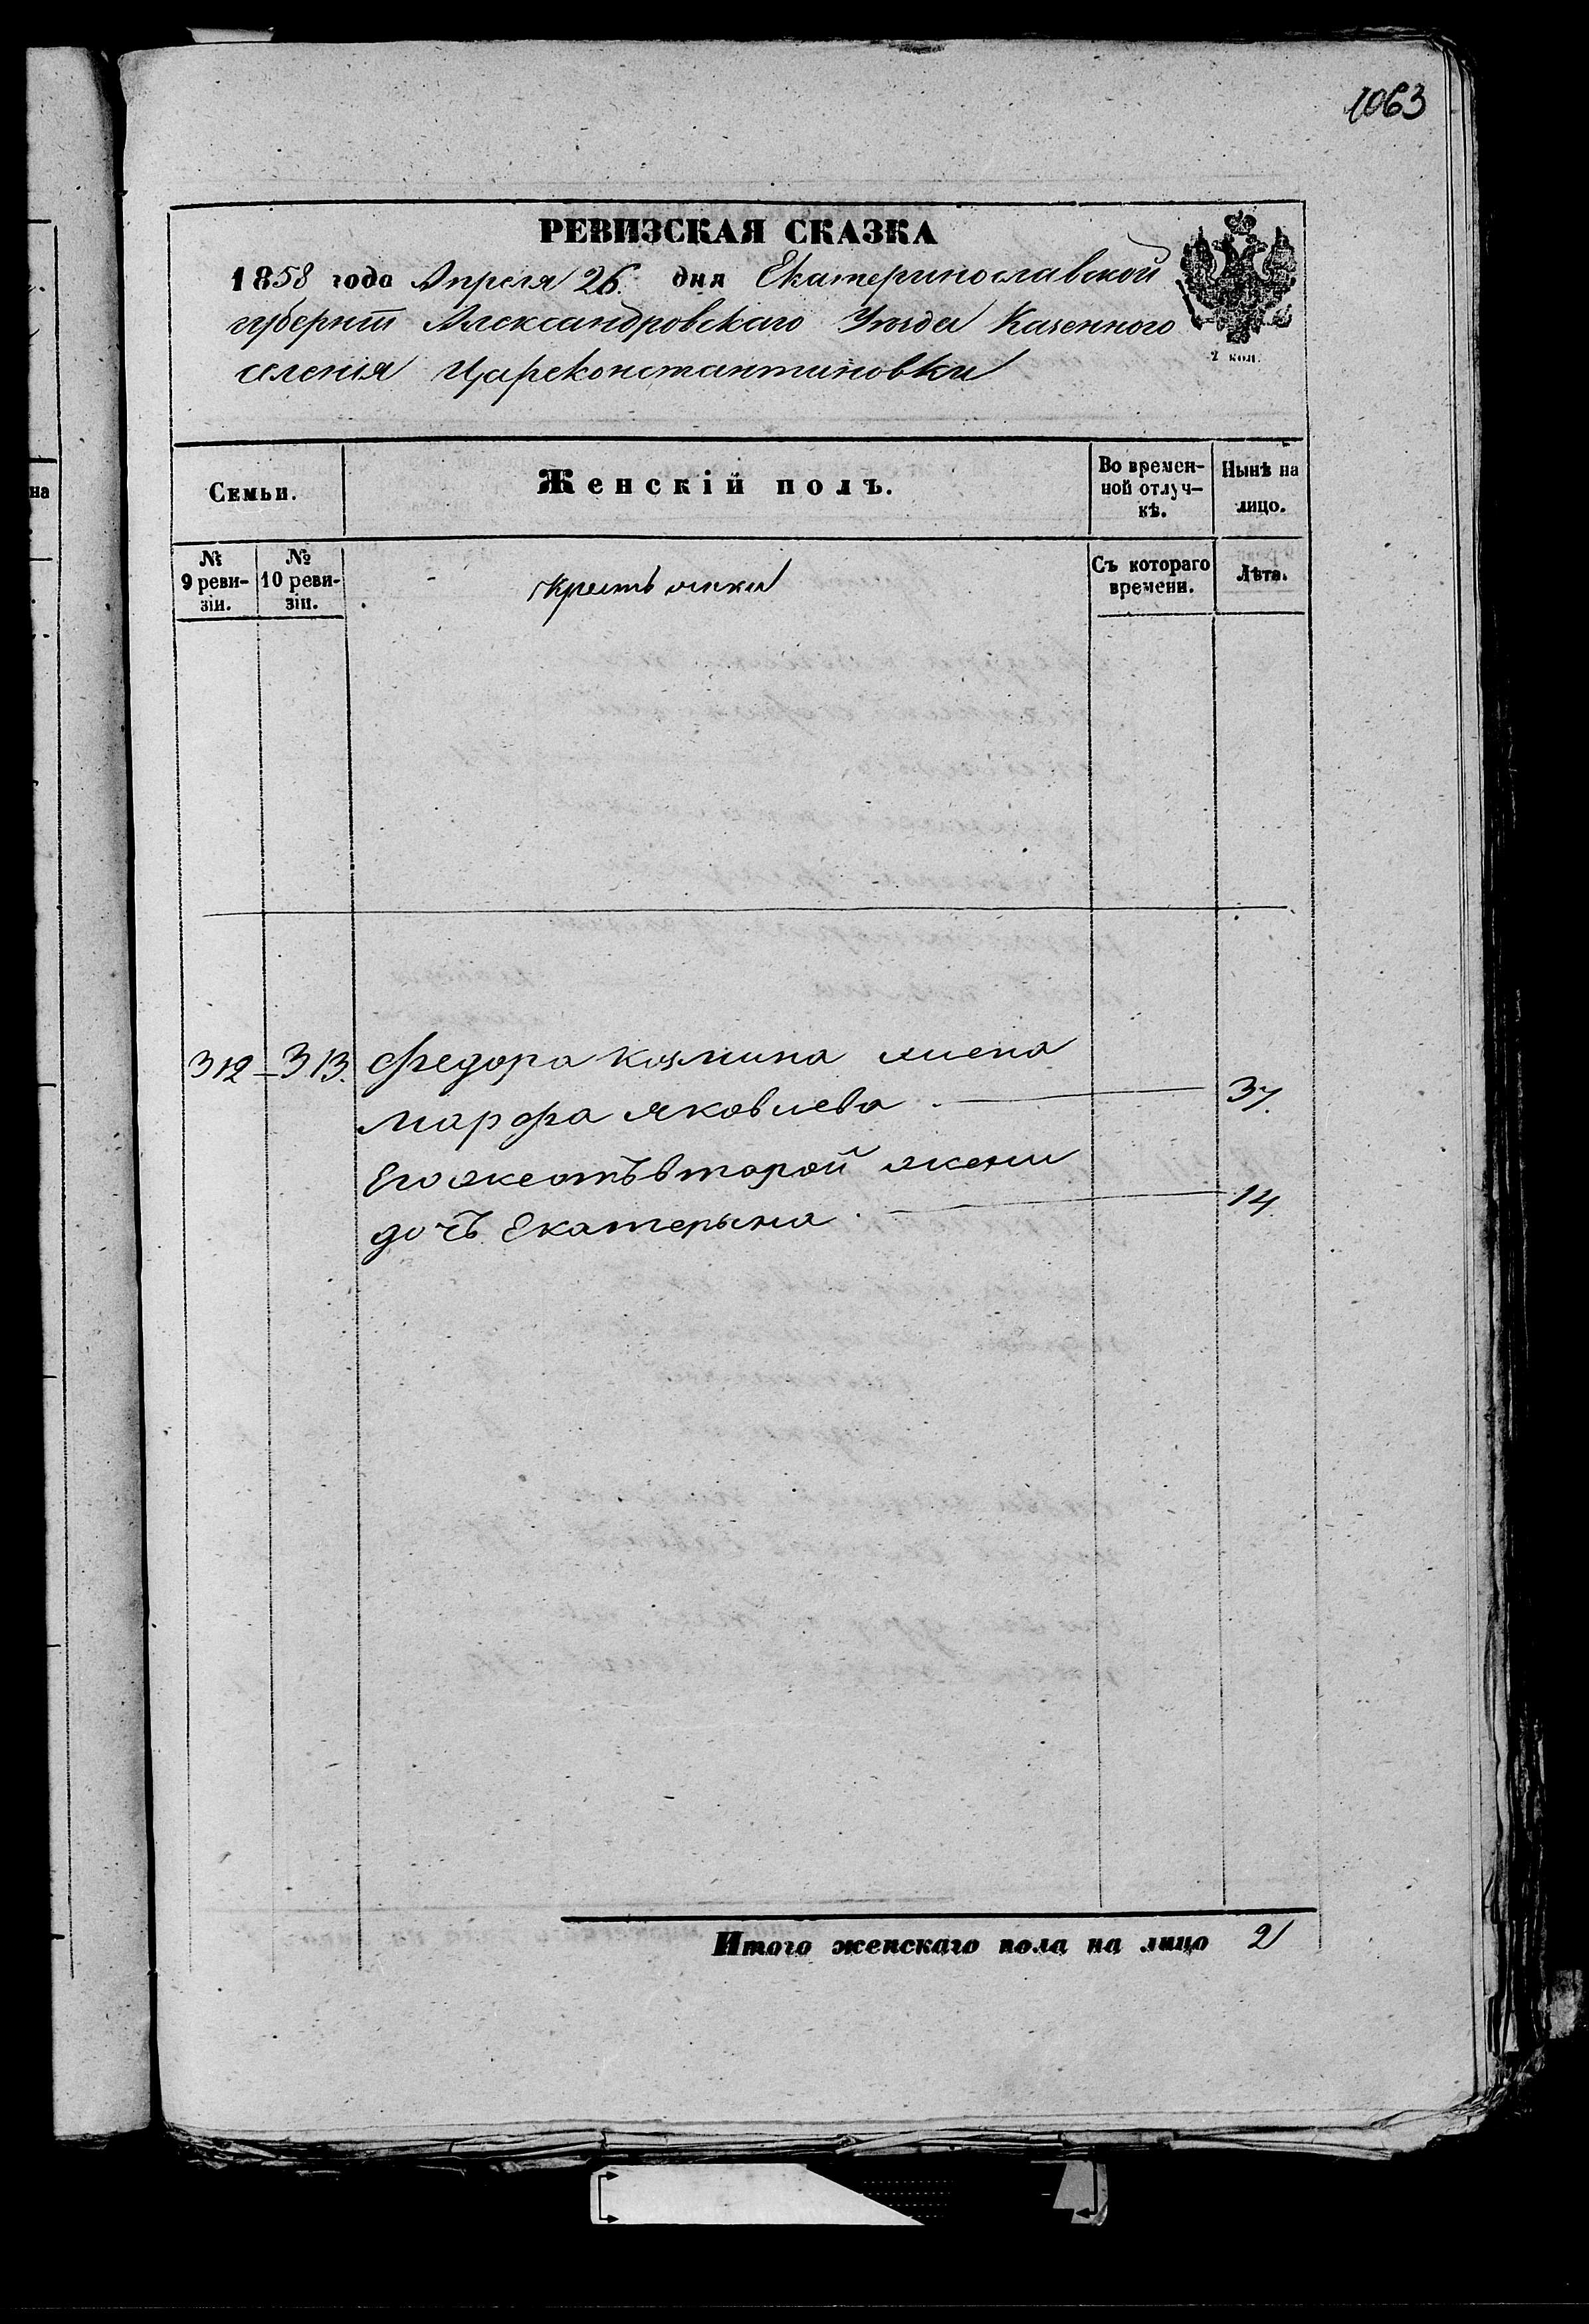 1063
РЕВИЗСКАЯ СКАЗКА
1858 года Апреля 26. дня Екатеринославской
губерніи Александровскаго Уѣзда Казенного
селенія Цареконстантиновки
2 коп.
Семьи. Женскій полъ. Во времен- Нынѣ на
ной отлуч- лицо.
кѣ.
№ № Крестьянки Съ котораго Лѣта.
9 реви- 10 реви- времени.
зіи. зіи.
312 313. Федора Козмина жена
Марфа Яковлева 37.
Его же отъ второй жены
дочъ Екатерына 14
Итого женскаго пола на лицо 2
на